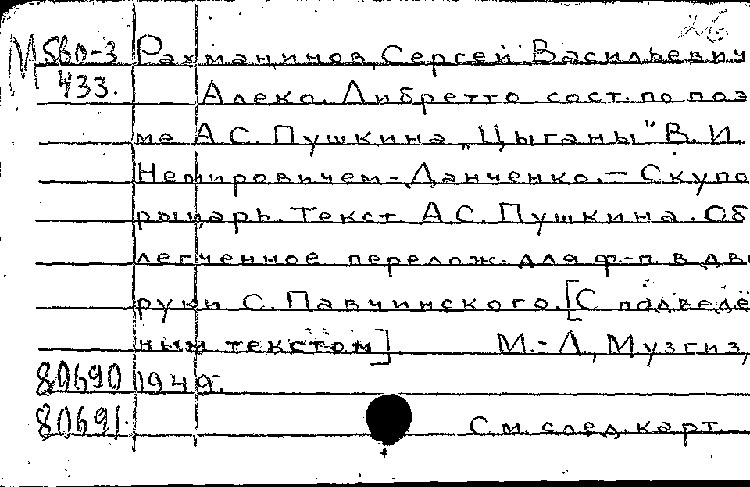 26
М 560-3 Рахманинов, Сергей Васильевич
433. Алеко. Либретто сост. по поэ
ме А.С. Пушкина „Цыганы" В.И.
Немировичем-Данченко. — Скупо
рыцарь. Текст А.С. Пушкина. Об
легченное перелож. для ф-п. в две
руки С. Павчинского. [С подведё
ным текстом] М.-Л., Музгиз,
80690 1949.
80691. См. след. карт